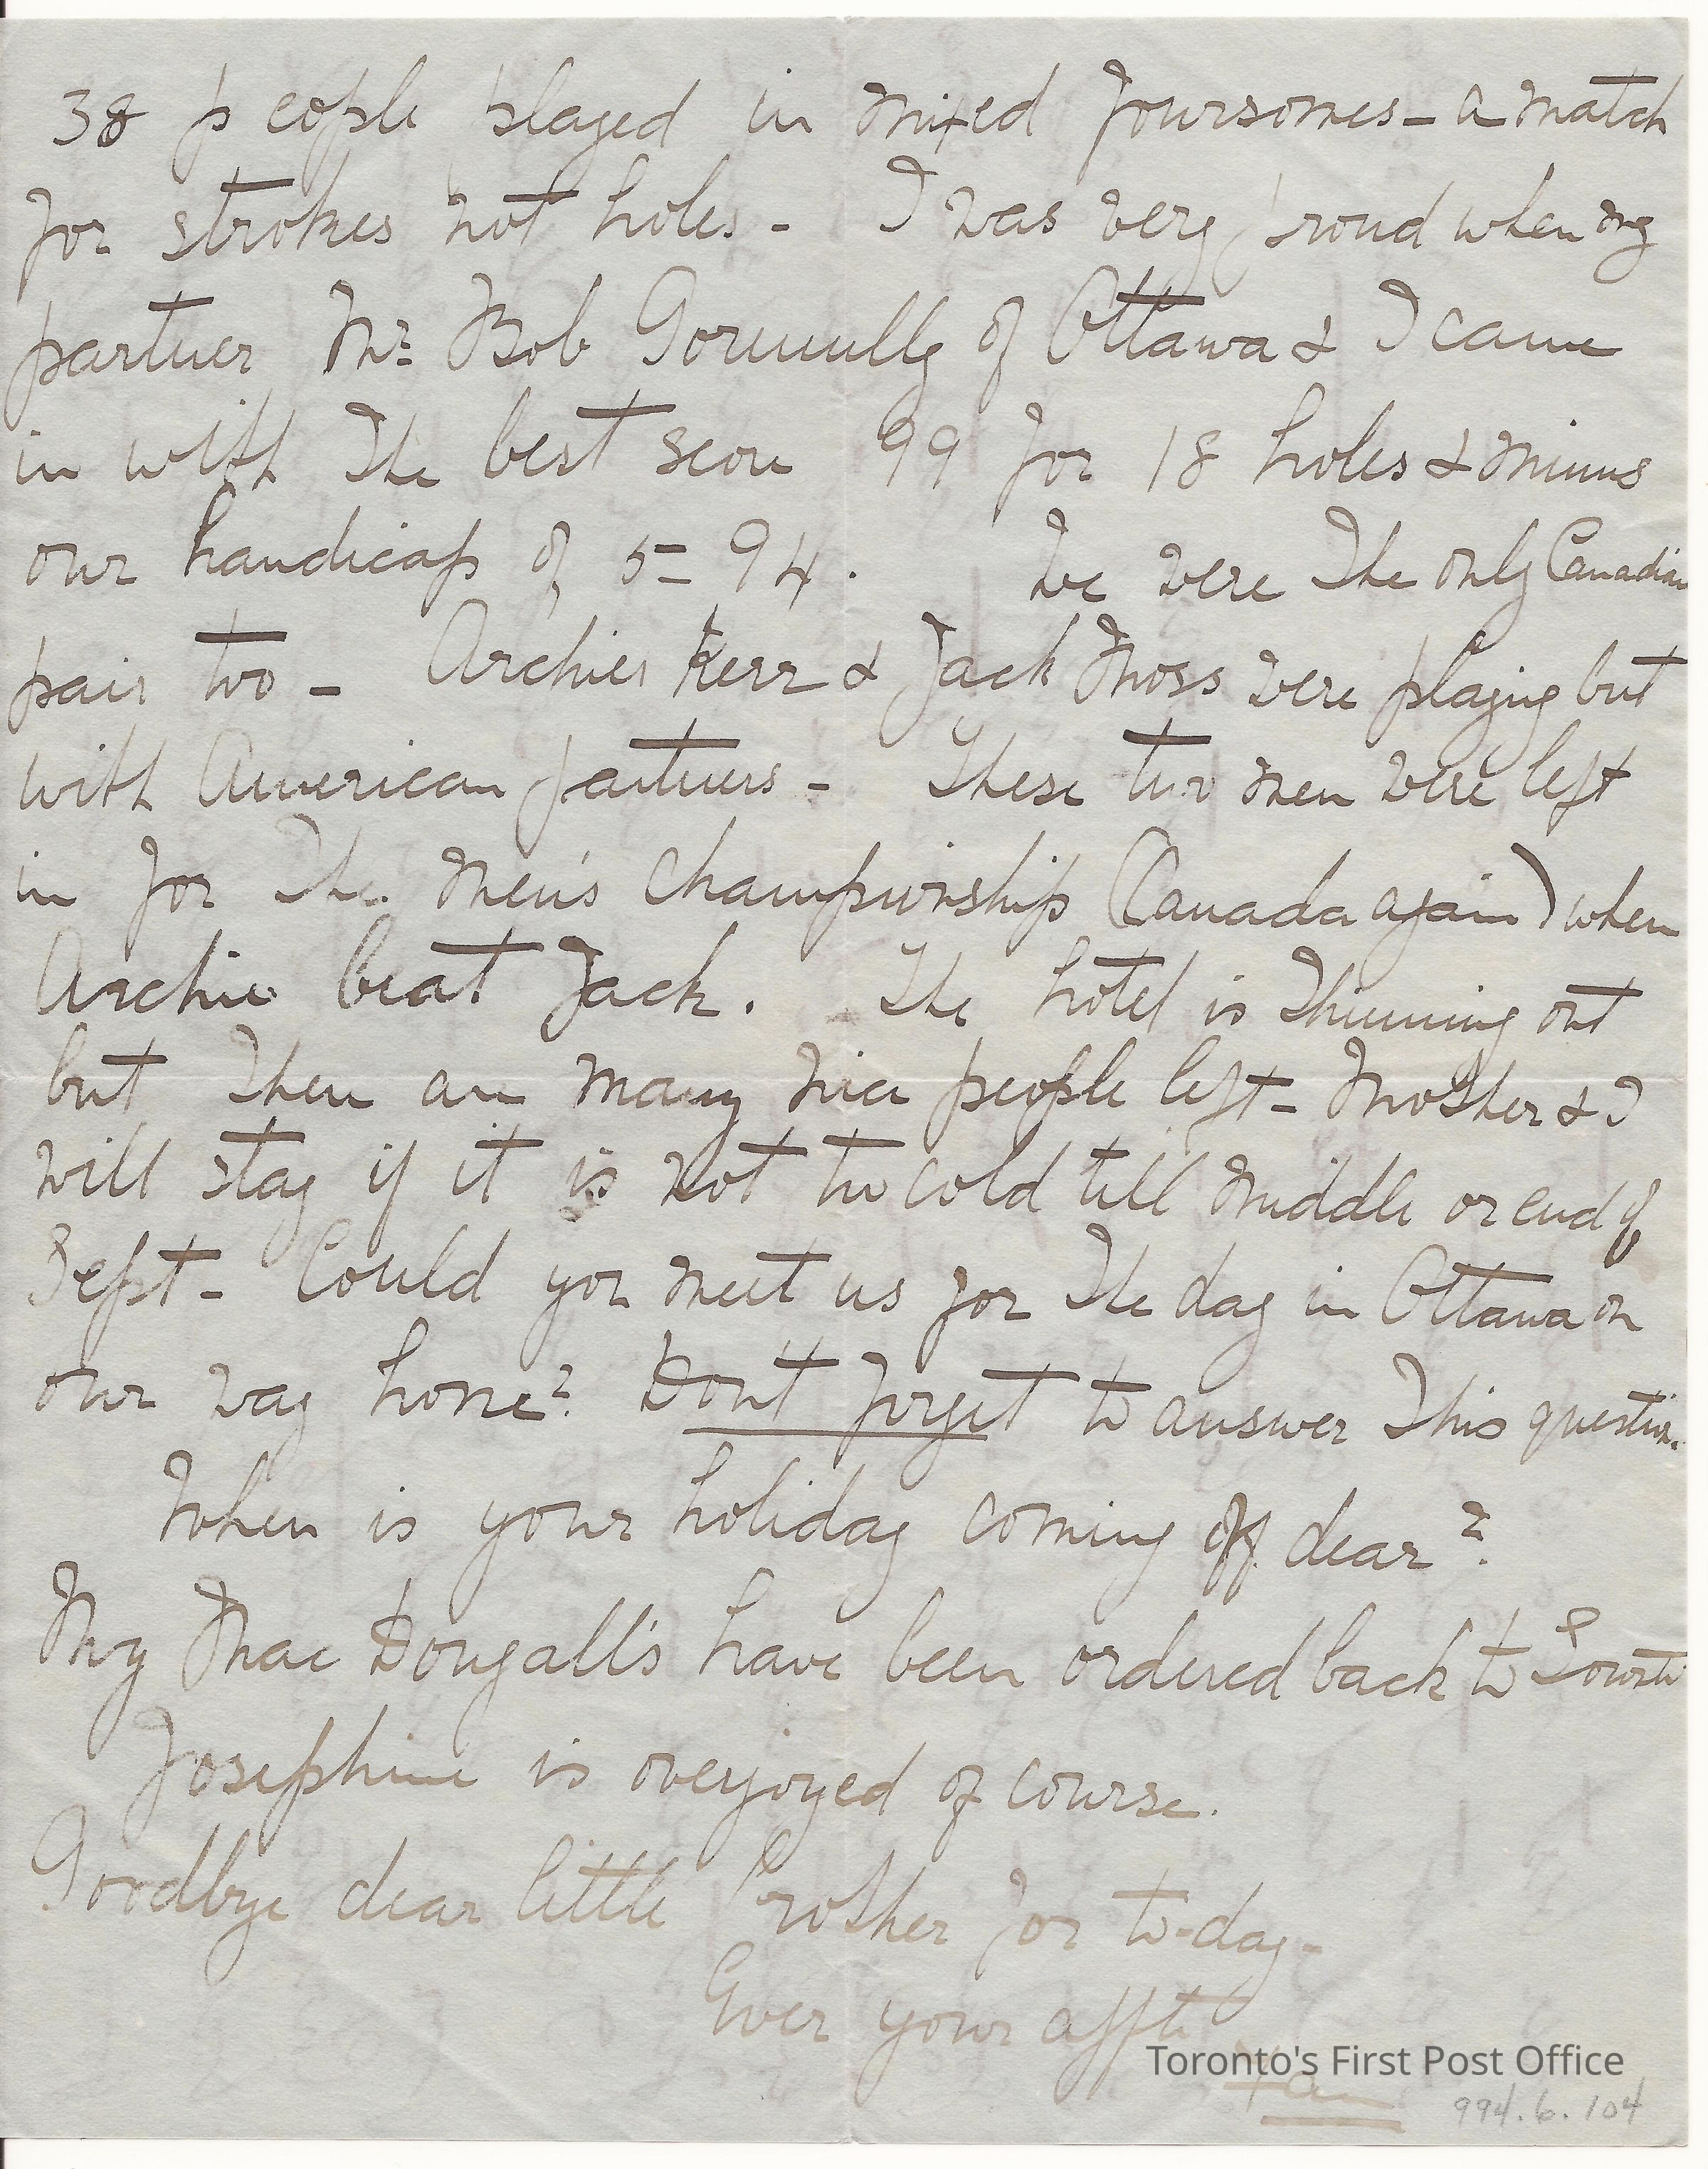 38 people played in mixed foursomes - a match
for strokes not holes - I was very proud when my
partner Mr. Bob Gormully of Ottawa & I came
in with the best score 99 for 18 holes & minus
our handicap of 5 = 94. We were the only Canadian
pair too - Archie Kerr & Jack Moss were playing but
with American partners - These two men were left
in for the men's championship (Canada again) when
Archie beat Jack. The hotel is thinning out
but there are many nice people left - Mother & I
will stay if it is not too cold till middle or end of
Sept - Could you meet us for the day in Ottawa on
our way home? Dont forget to answer this question.
When is your holiday coming off dear?
My MacDougall's have been ordered back to
Josephine is overjoyed of course.
Goodbye dear little Brother for to-day -
Ever your affte
Toronto's First Post Office
994.6.104